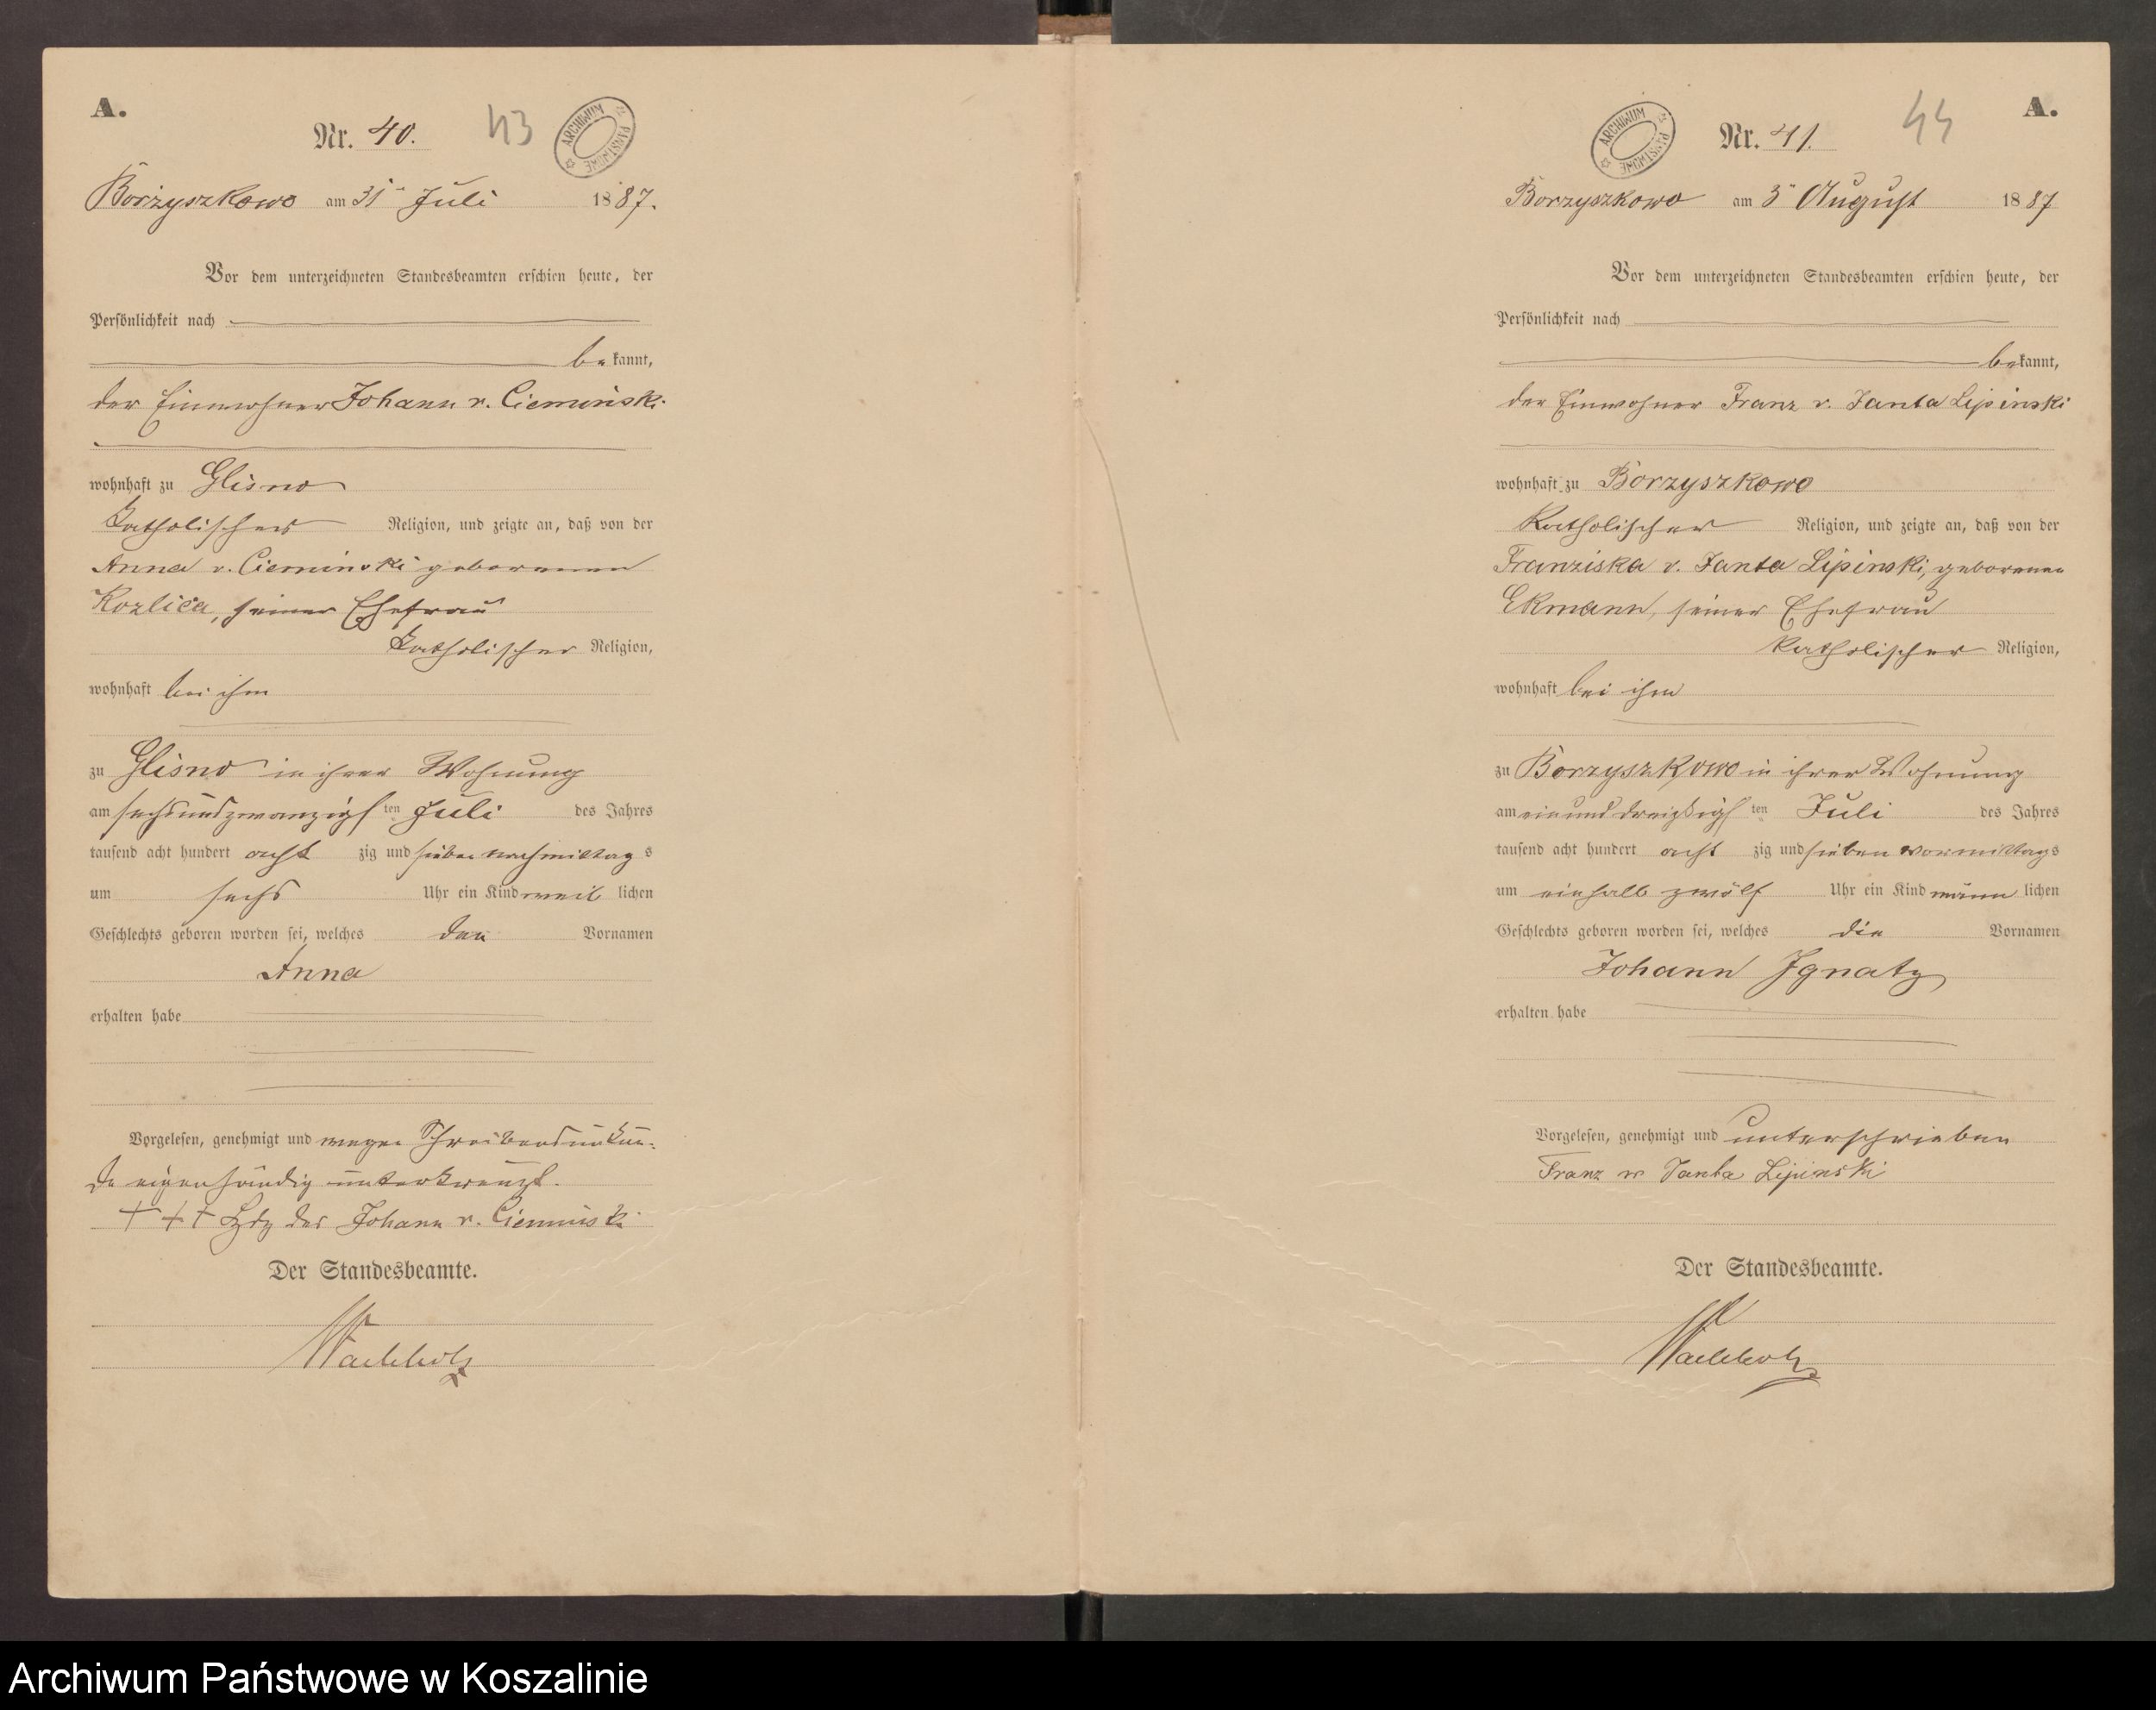 A.
Nr. 40.
43
ARCHIWUM PAŃSTWOWE
Borzyszkowo am 31ten Juli 1887.
Vor dem unterzeichneten Standesbeamten erschien heute, der
Persönlichkeit nach
bekannt,
der Einwohner Johann v. Cieminski
wohnhaft zu Glisno
katholischer Religion, und zeigte an, daß von der
Anna v. Cieminski geborenen
Kozlica, seiner Ehefrau
katholischer Religion,
wohnhaft bei ihm
zu Glisno in ihrer Wohnung
am sechsundzwanzigsten Juli des Jahres
tausend acht hundert achtzig und sieben nachmittags
um sechs Uhr ein Kind weiblichen
Geschlechts geboren worden sei, welches den Vornamen
Anna
erhalten habe
Vorgelesen, genehmigt und wegen Schreibensunkun-
de eigenhändig unterkreuzt.
+ + + Hdz des Johann v. Cieminski
Der Standesbeamte.
Wachholz
A.
Nr. 41.
44
ARCHIWUM PAŃSTWOWE
Borzyszkowo am 3ten August 1887
Vor dem unterzeichneten Standesbeamten erschien heute, der
Persönlichkeit nach
bekannt,
der Einwohner Franz v. Janta Lipinski
wohnhaft zu Borzyszkowo
katholischer Religion, und zeigte an, daß von der
Franziska v. Janta Lipinski, geborenen
Ekmann, seiner Ehefrau
katholischer Religion,
wohnhaft bei ihm
zu Borzyszkowo in ihrer Wohnung
am einunddreißigsten Juli des Jahres
tausend acht hundert achtzig und sieben vormittags
um einhalb zwölf Uhr ein Kind männlichen
Geschlechts geboren worden sei, welches die Vornamen
Johann Ignatz
erhalten habe
Vorgelesen, genehmigt und unterschrieben
Franz v Janta Lipinski
Der Standesbeamte.
Wachholz
Archiwum Państwowe w Koszalinie